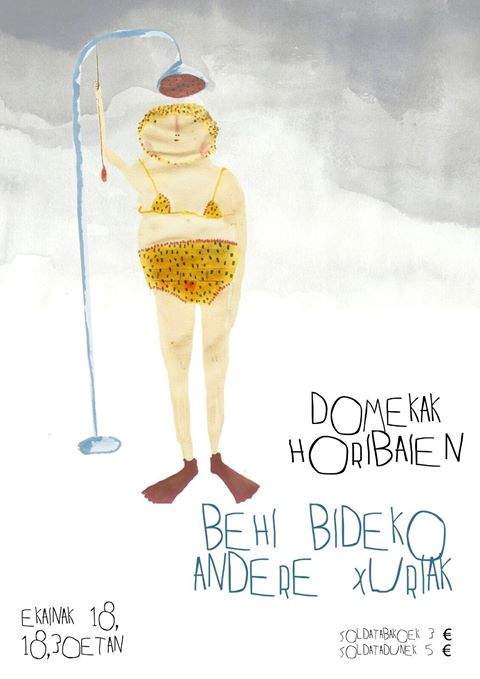 DOMEKAK
HORIBAIEN
BEHI BIDEKO
ANDERE XURIAK
EKAINAK 18,
18,30ETAN
SOLDATABAKOEK 3 €
SOLDATADUNEK 5 €